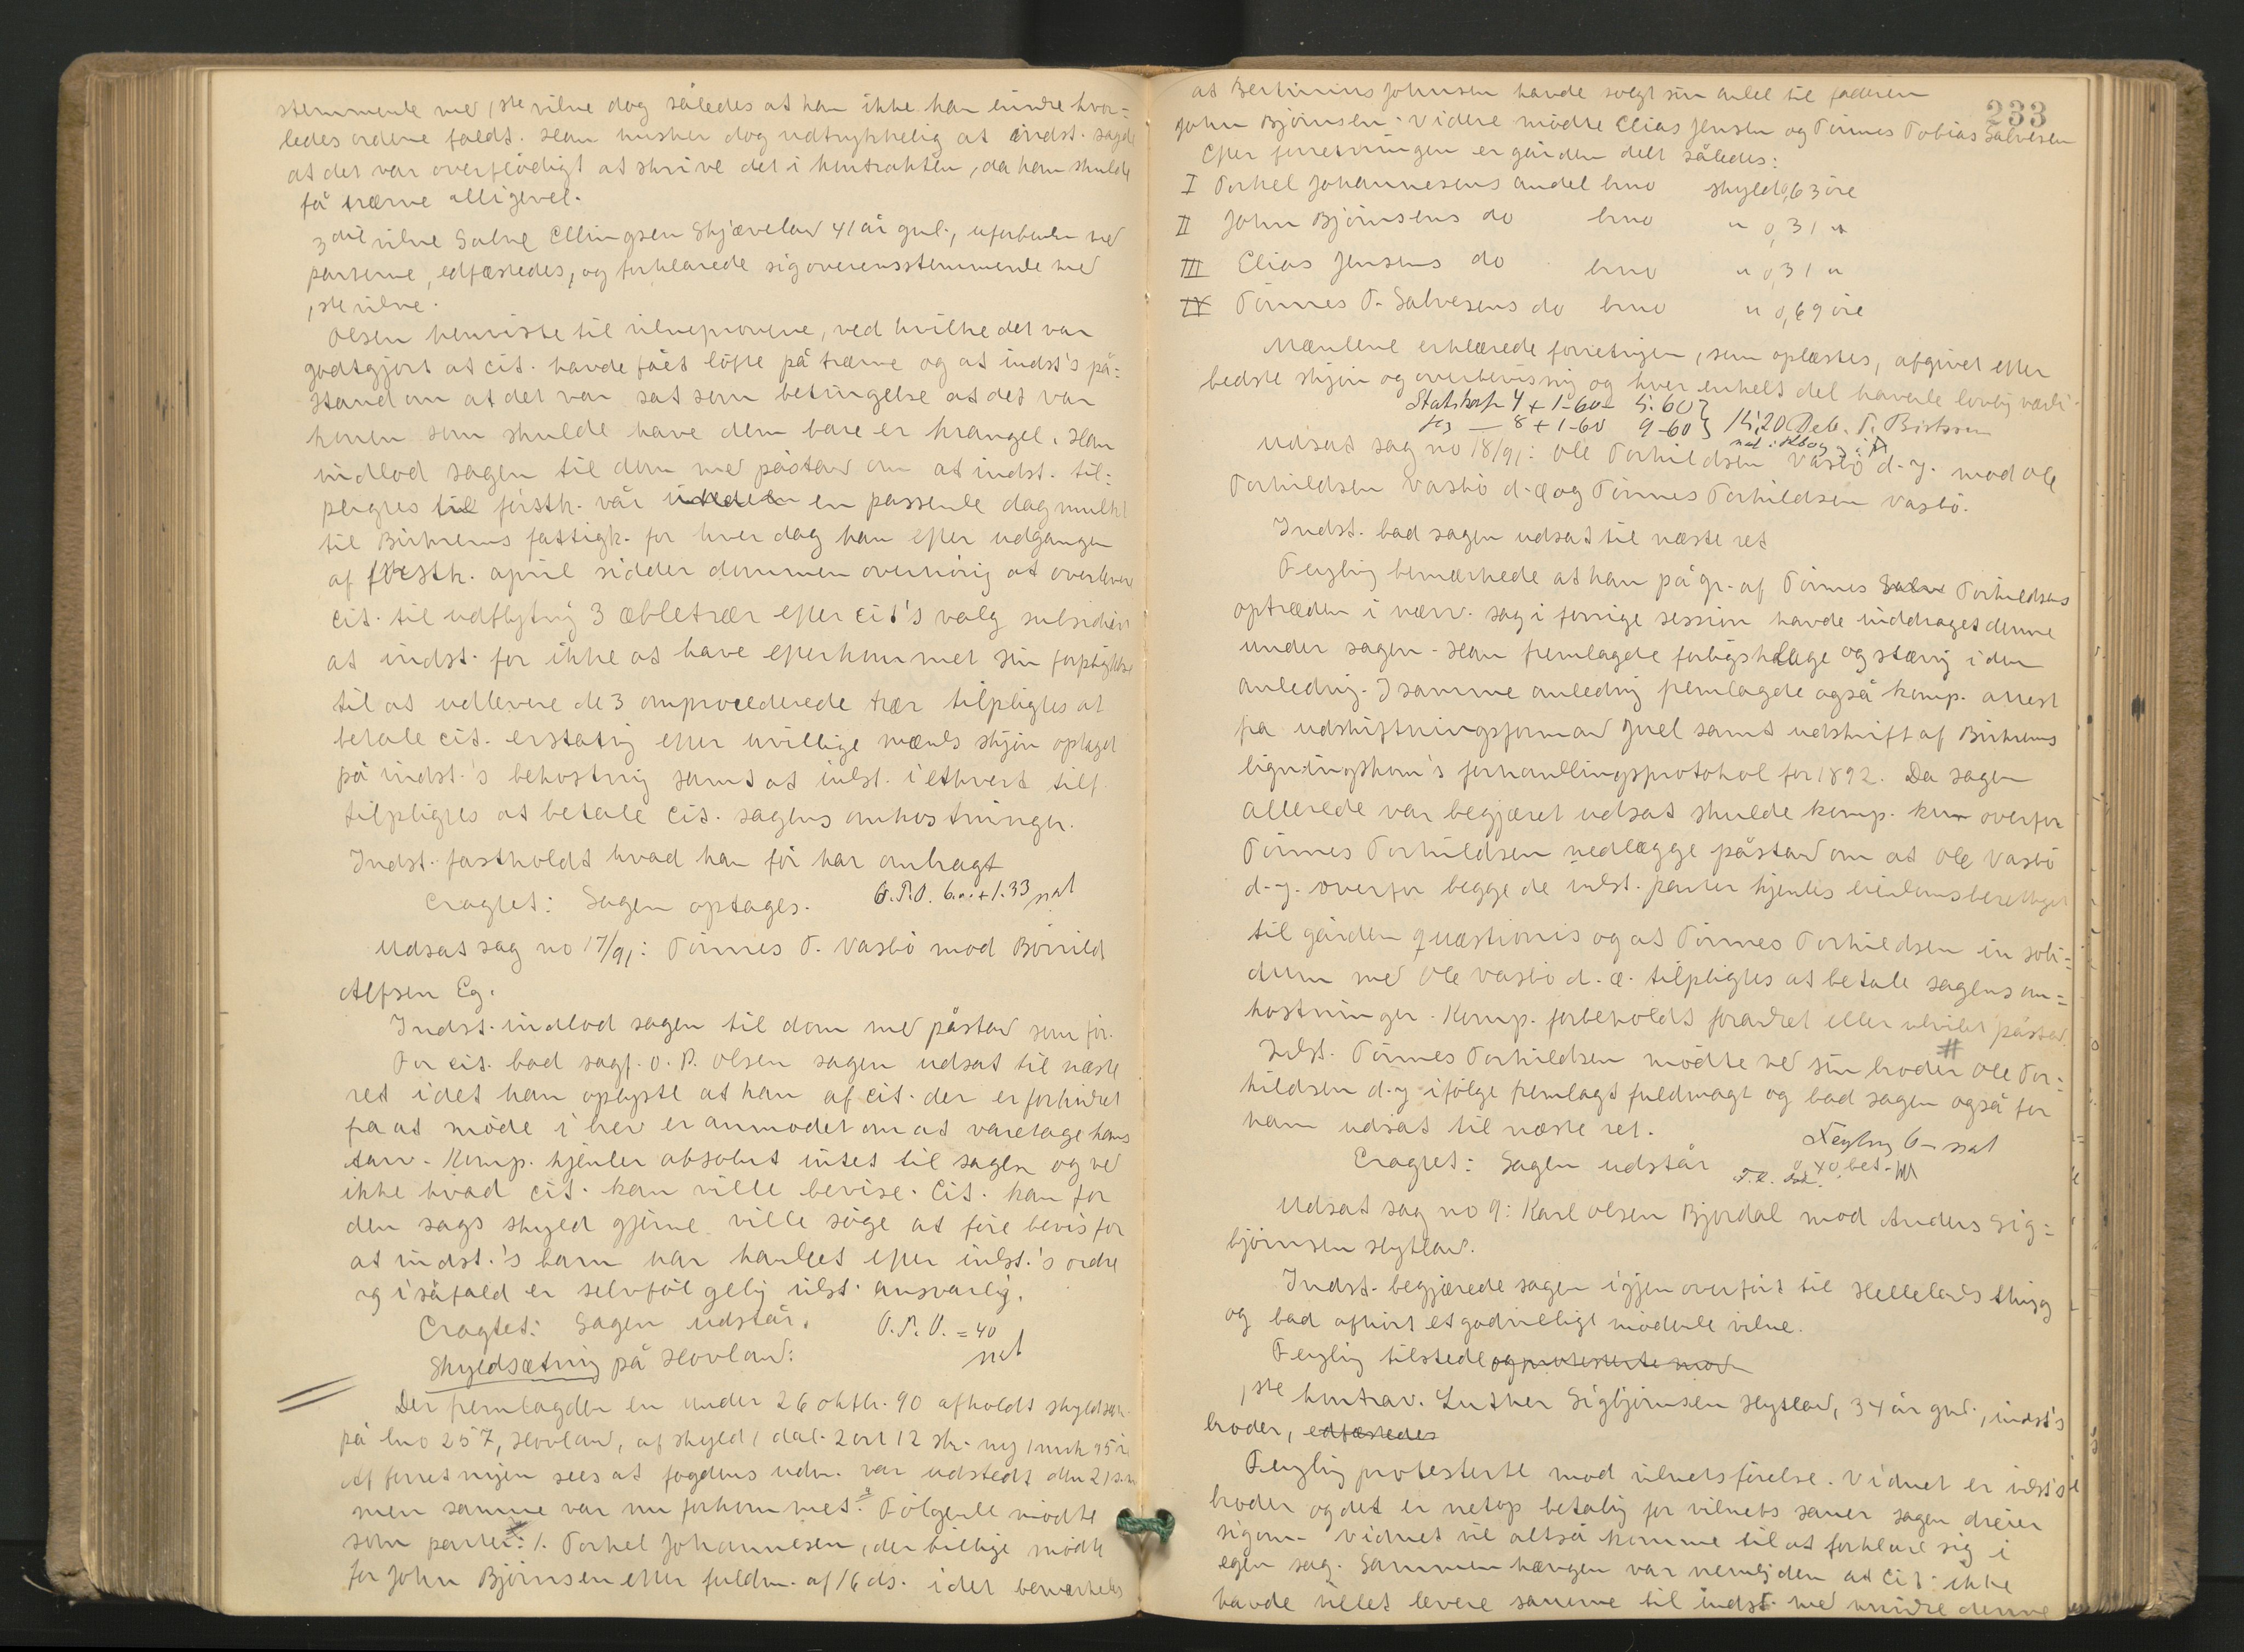 stemmende med 1ste vidne dog således at han ikke kan erindre hvor-
ledes ordene faldt. Han husker dog udtrykkelig at indst. sagde
at det var overflödigt at skrive det i kontrakten, da han skulde
få træerne alligevel.
3die vidne Salve Ellingsen Skjæveland 41 år gml., uforbunden med
parterne, edfæstedes, og forklarede sig overensstemmende med
1ste vidne.
Olsen henviste til vidneprovene, ved hvilke det var
godtgjort at cit. havde fået löfte på træerne og at indst's på-
stand om at det var sat som betingelse at det var
konen som skulde have dem bare er krangel. Han
indlod sagen til dom med påstand om at indst. til-
pligtes til förstk. vår en passende dagmulkt
til Birkrems fattigk. for hver dag han efter udgangen
af förstk. april sidder dommen overhörig at overlevere
cit. til udflytning 3 æbletrær efter cit's valg subsidiært
at indst. for ikke at have efterkommet sin forpligtelse
til at udlevere de 3 omprocederede trær tilpligtes at
betale cit. erstatning efter uvillige mænds skjön optaget
på indst.'s bekostning samt at indst. i ethvert tilf.
tilpligtes at betale cit. sagens omkostninger.
Indst. fastholdt hvad han för har andragt
Eragtet: Sagen optages. O.P.O. 6.00 + 1.33 not
Udsat sag no 17/91: Tönnes T. Vasbö mod Börild
Alfsen Eg.
Indst. indlod sagen til dom med påstand som för.
For cit. bad sagf. O. P. Olsen sagen udsat til næste
ret idet han oplyste at han af cit. der er forhindret
fra at möde i brev er anmodet om at varetage hans
tarv. Komp. kjender absolut intet til sagen og ved
ikke hvad cit. kan ville bevise. Cit. kan for
den sags skyld gjerne ville söge at före bevis for
at indst.'s barn har handlet efter indst.'s ordre
og i såfald er selvfölgelig indst. ansvarlig.
Eragtet: Sagen udstår. O.P.O. = 40 not
Skyldsætning på Hovland:
Der fremlagdes en under 26 oktbr. 90 afholdt skyldsæt.
på lno 257, Hovland, af skyld 1 dal. 2 ort 12 sk. ny 1 mrk 95 öre
Af forretningen sees at fogdens udn. var udstedt den 21 s.m.
men samme var nu forkommet. Fölgende mödte
som parter: 1. Torkel Johannesen, der tillige mödte
for John Björnsen efter fuldm. af 16 ds. idet bemærkedes
233
at Bertinius Johnsen havde solgt sin andel til faderen
John Björnsen. Videre mödte Elias Jensen og Tönnes Tobias Salvesen
Efter forretningen er gården delt således:
I Torkel Johannesens andel bno skyld 0,63 öre
II John Björnsens do bno " 0,31 "
III Elias Jensens do bno " 0,31 "
IV Tönnes T. Salvesens do bno " 0,69 öre
Mændene erklærede forretningen, som oplæstes, afgivet efter
bedste skjön og overbevisning og hver enkelt del havende lovlig værdi.
Statskass 4 + 1-60 = 5.60
8 + 1-60 9-60 } 15,20 Deb. T.
Udsat sag no 18/91: Ole Torkildsen Vasbö d.y. mod Ole
Torkildsen Vasbö d.æ og Tönnes Torkildsen Vasbö.
Indst. bad sagen udsat til næste ret
Feyling bemærkede at han på gr. af Tönnes Salve Torkildsens
optræden i nærv. sag i forrige session havde inddraget denne
under sagen. Han fremlagde forligsklage og stævning i den
anledning. I samme anledning fremlagde også komp. attest
fra udskiftningsformand Juel samt udskrift af Birkrems
ligningskom's forhandlingsprotokol for 1892. Da sagen
allerede var begjæret udsat skulde komp. kun overfor
Tönnes Torkildsen nedlægge påstand om at Ole Vasbö
d.y. overfor begge de indst. parter kjendes eiendomsberettiget
til gården quæstionis og at Tönnes Torkildsen in soli-
dum med Ole Vasbö d.æ. tilpligtes at betale sagens om-
kostninger. Komp. forbeholdt forandret eller udvidet påstand.
Indst. Tönnes Torkildsen mödte ved sin broder Ole Tor-
kildsen d.y ifölge fremlagt fuldmagt og bad sagen også for
ham udsat til næste ret.
Feyling 6- not
Eragtet: Sagen udstår 0,40 bet.
Udsat sag no 9: Karl Olsen Bjordal mod Anders Sig-
björnsen Hytland.
Indst. begjærede sagen igjen overfört til Hellelands thing
og bad afhört et godvilligt mödende vidne.
Feyling tilstede og protesterte mod
1ste kontrav. Luther Sigbjörnsen Hytland, 34 år gml., indst's
broder, edfæstedes
Feyling protesterte mod vidnets förelse. Vidnet er indst's
broder og det er netop betaling for vidnets sauer sagen dreier
sig om. Vidnet vil altså komme til at forklare sig i
egen sag. Sammenhængen var nemlig den at cit. ikke
havde villet levere sauerne til indst. med mindre denne